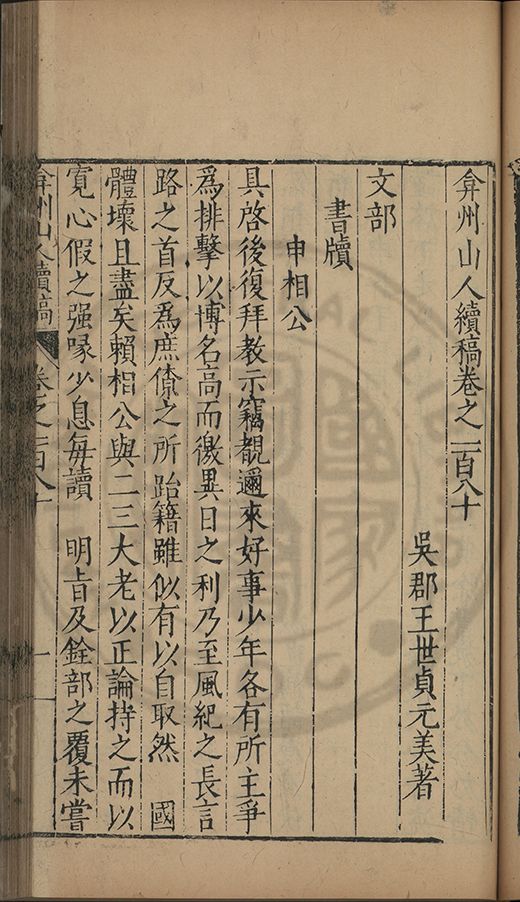 弇州山人續稿卷之一百八十
吳郡王世貞元美著
文部
書牘
申相公
具啓後復拜教示竊覩邇來好事少年各有所主爭
為排擊以博名高而徼異日之利乃至風紀之長言
路之首反為庶僚之所跆籍雖似有以自取然　國
體壞且盡矣賴相公與二三大老以正論持之而以
寬心假之强喙少息每讀　明旨及銓部之覆未嘗
弇州山人續稿　卷之一百八十　一